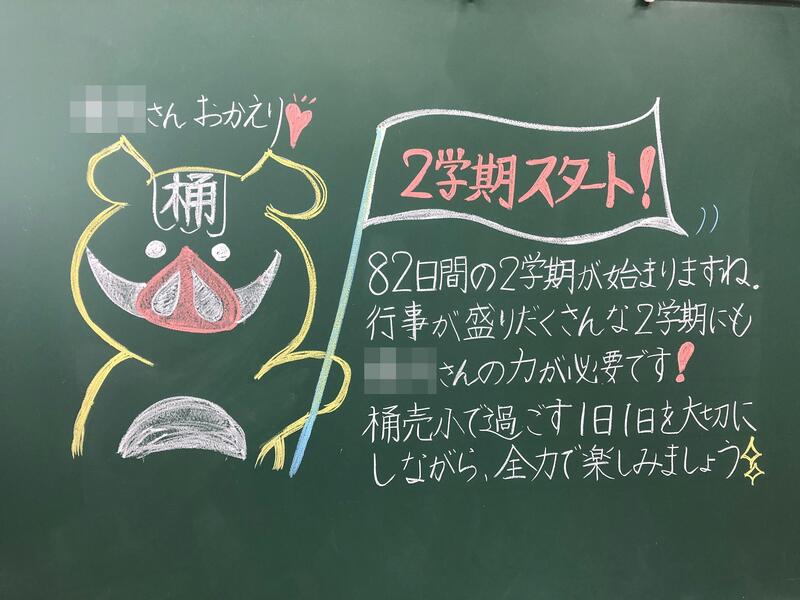 さん おかえり
桶
2学期スタート!
82日間の2学期が始まりますね.
行事が盛りだくさんな2学期にも
さんの力が必要です!
桶売小で過ごす1日1日を大切に
しながら、全力で楽しみましょう